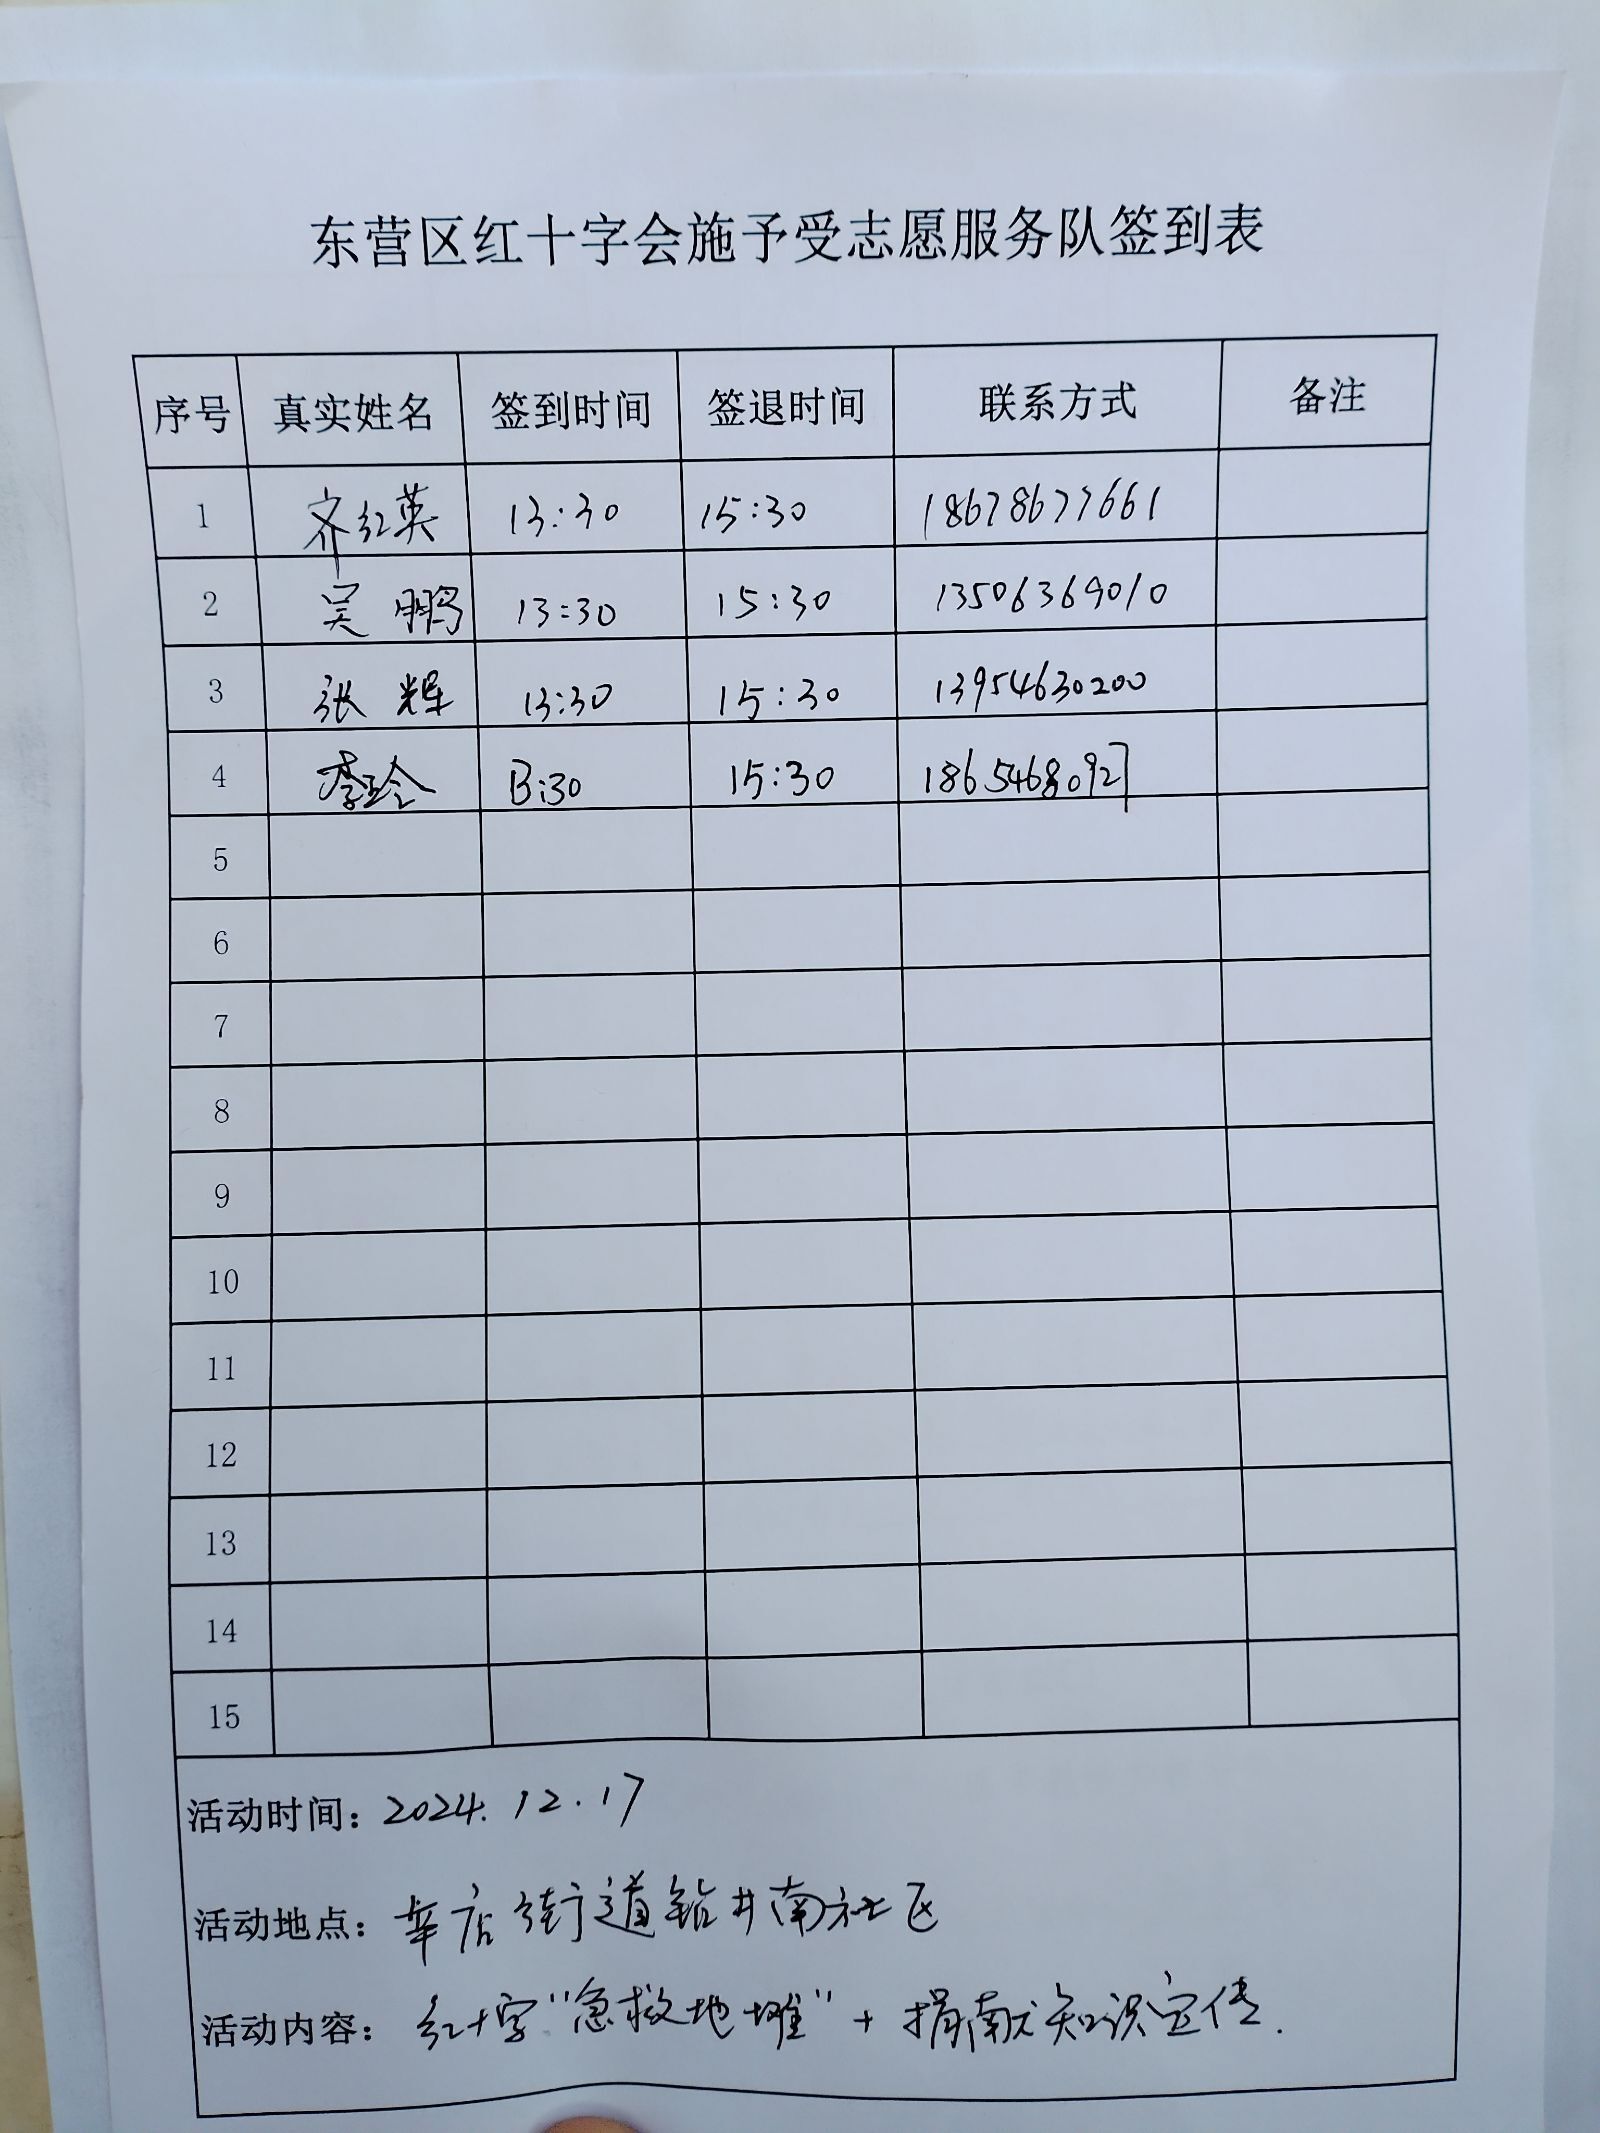 东营区红十字会施予受志愿服务队签到表
序号 真实姓名 签到时间 签退时间 联系方式 备注
1 齐红英 13:30 15:30 18678677661
2 吴鹏 13:30 15:30 13506369010
3 张辉 13:30 15:30 13954630200
4 李玲 13:30 15:30 18654680927
5
6
7
8
9
10
11
12
13
14
15
活动时间: 2024.12.17
活动地点: 辛店街道钻井南社区
活动内容: 红十字"急救地摊"+捐献知识宣传.